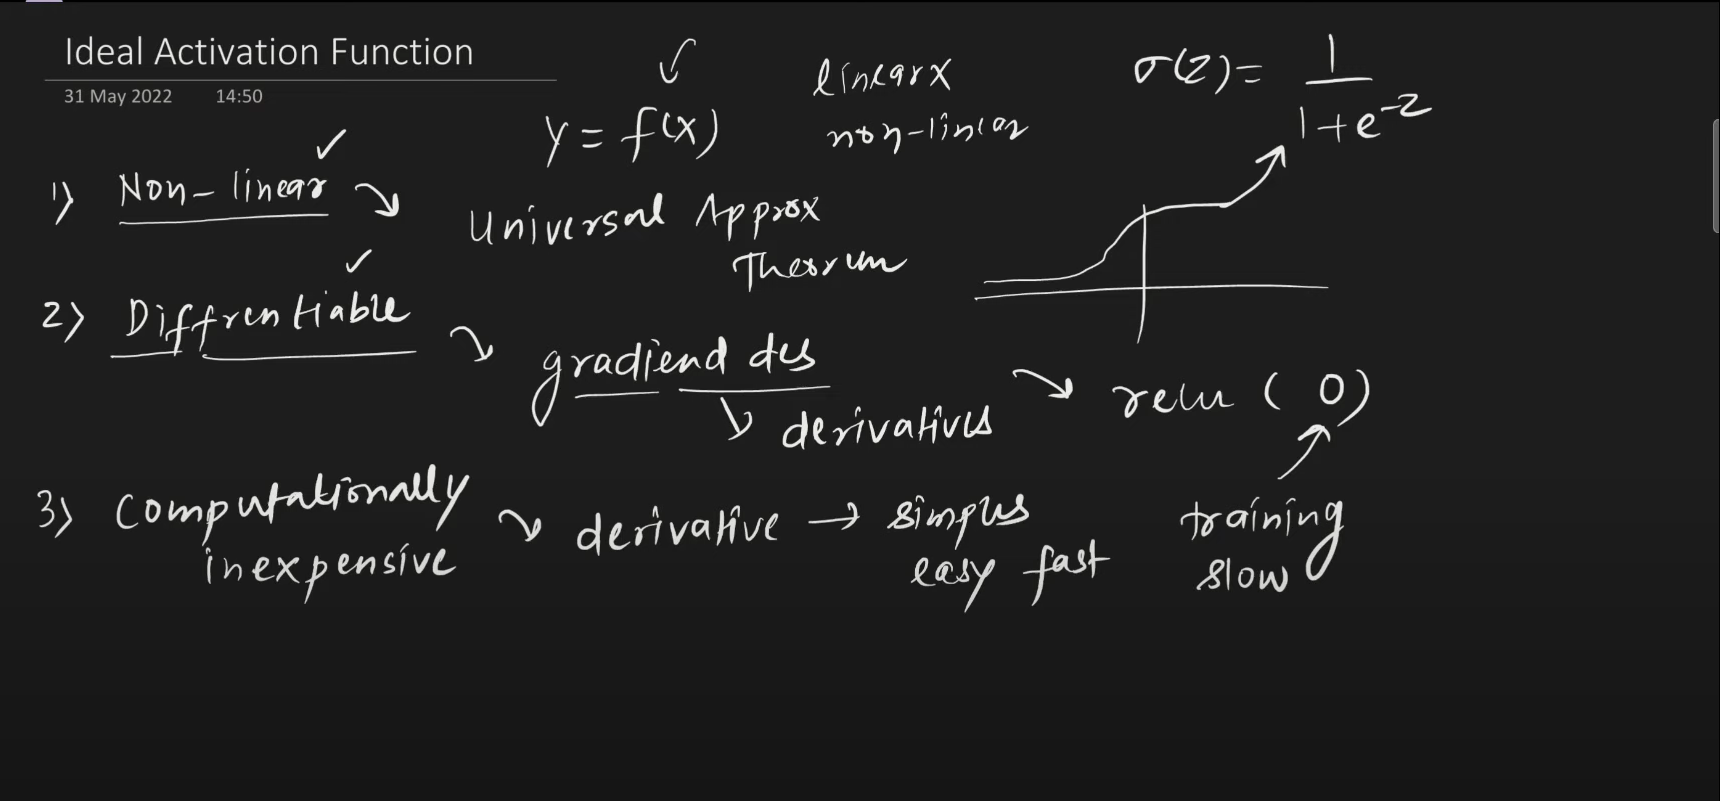 Ideal Activation Function
31 May 2022 14:50
y = f(x)
linear x
non-linear
σ(z) = 1 / 1+e^-z
1) Non-linear
Universal Approx
Theorum
2) Diffrentiable
gradiend des
derivatives
relu (0)
3) Computationally
inexpensive
derivative → simples
easy fast
training
slow